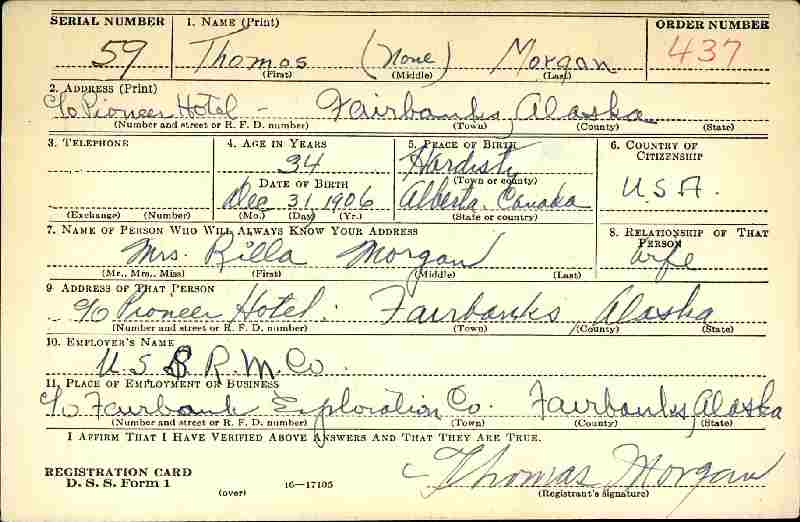 SERIAL NUMBER 1. NAME (Print) ORDER NUMBER
59 Thomas (None) Morgan 437
(First) (Middle) (Last)
2. ADDRESS (Print)
c/o Pioneer Hotel - Fairbanks, Alaska
(Number and street or R. F. D. number) (Town) (County) (State)
3. TELEPHONE 4. AGE IN YEARS 5. PLACE OF BIRTH 6. COUNTRY OF CITIZENSHIP
34 Hardisty U.S.A.
DATE OF BIRTH (Town or county)
Dec 31 1906 Alberta. Canada
(Exchange) (Number) (Mo.) (Day) (Yr.) (State or country)
7. NAME OF PERSON WHO WILL ALWAYS KNOW YOUR ADDRESS 8. RELATIONSHIP OF THAT PERSON
Mrs. Rilla Morgan wife
(Mr., Mrs., Miss) (First) (Middle) (Last)
9 ADDRESS OF THAT PERSON
c/o Pioneer Hotel. Fairbanks Alaska
(Number and street or R. F. D. number) (Town) (County) (State)
10. EMPLOYER'S NAME
U.S S R. M. Co.
11. PLACE OF EMPLOYMENT OR BUSINESS
c/o Fairbank Exploration Co. Fairbanks, Alaska
(Number and street or R. F. D. number) (Town) (County) (State)
I AFFIRM THAT I HAVE VERIFIED ABOVE ANSWERS AND THAT THEY ARE TRUE.
REGISTRATION CARD Thomas Morgan
D. S. S. Form 1 (over) 16—17105 (Registrant's signature)